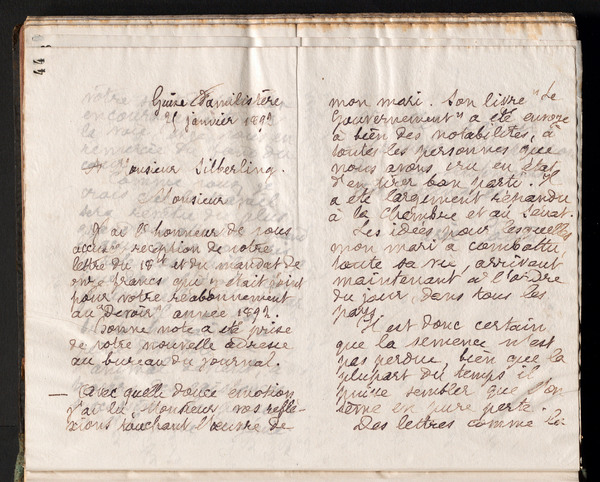 44
Guise Familistère
21 janvier 1892
A Monsieur Silberling.
Monsieur
J'ai l'honneur de vous
accuser réception de votre
lettre du 18 et du mandat de
onze francs qui y était joint
pour votre réabonnement
au "Devoir" année 1892.
Bonne note a été prise
de votre nouvelle adresse
au bureau du journal.
— Avec quelle douce émotion
j'ai lu, Monsieur, vos refle-
xions touchant l'œuvre de
mon mari. Son livre "Le
Gouvernement" a été envoyé
à bien des notabilités, à
toutes les personnes que
nous avons cru en état
d'en tirer bon parti. Il
a été largement répandu
à la Chambre et au Sénat.
Les idées pour lesquelles
mon mari a combattu
toute sa vie, arrivent
maintenant à l'ordre
du jour dans tous les
pays.
Il est donc certain
que la semence n'est
pas perdue, bien que la
plupart du temps il
puisse sembler que l'on
sème en pure perte.
Des lettres comme la